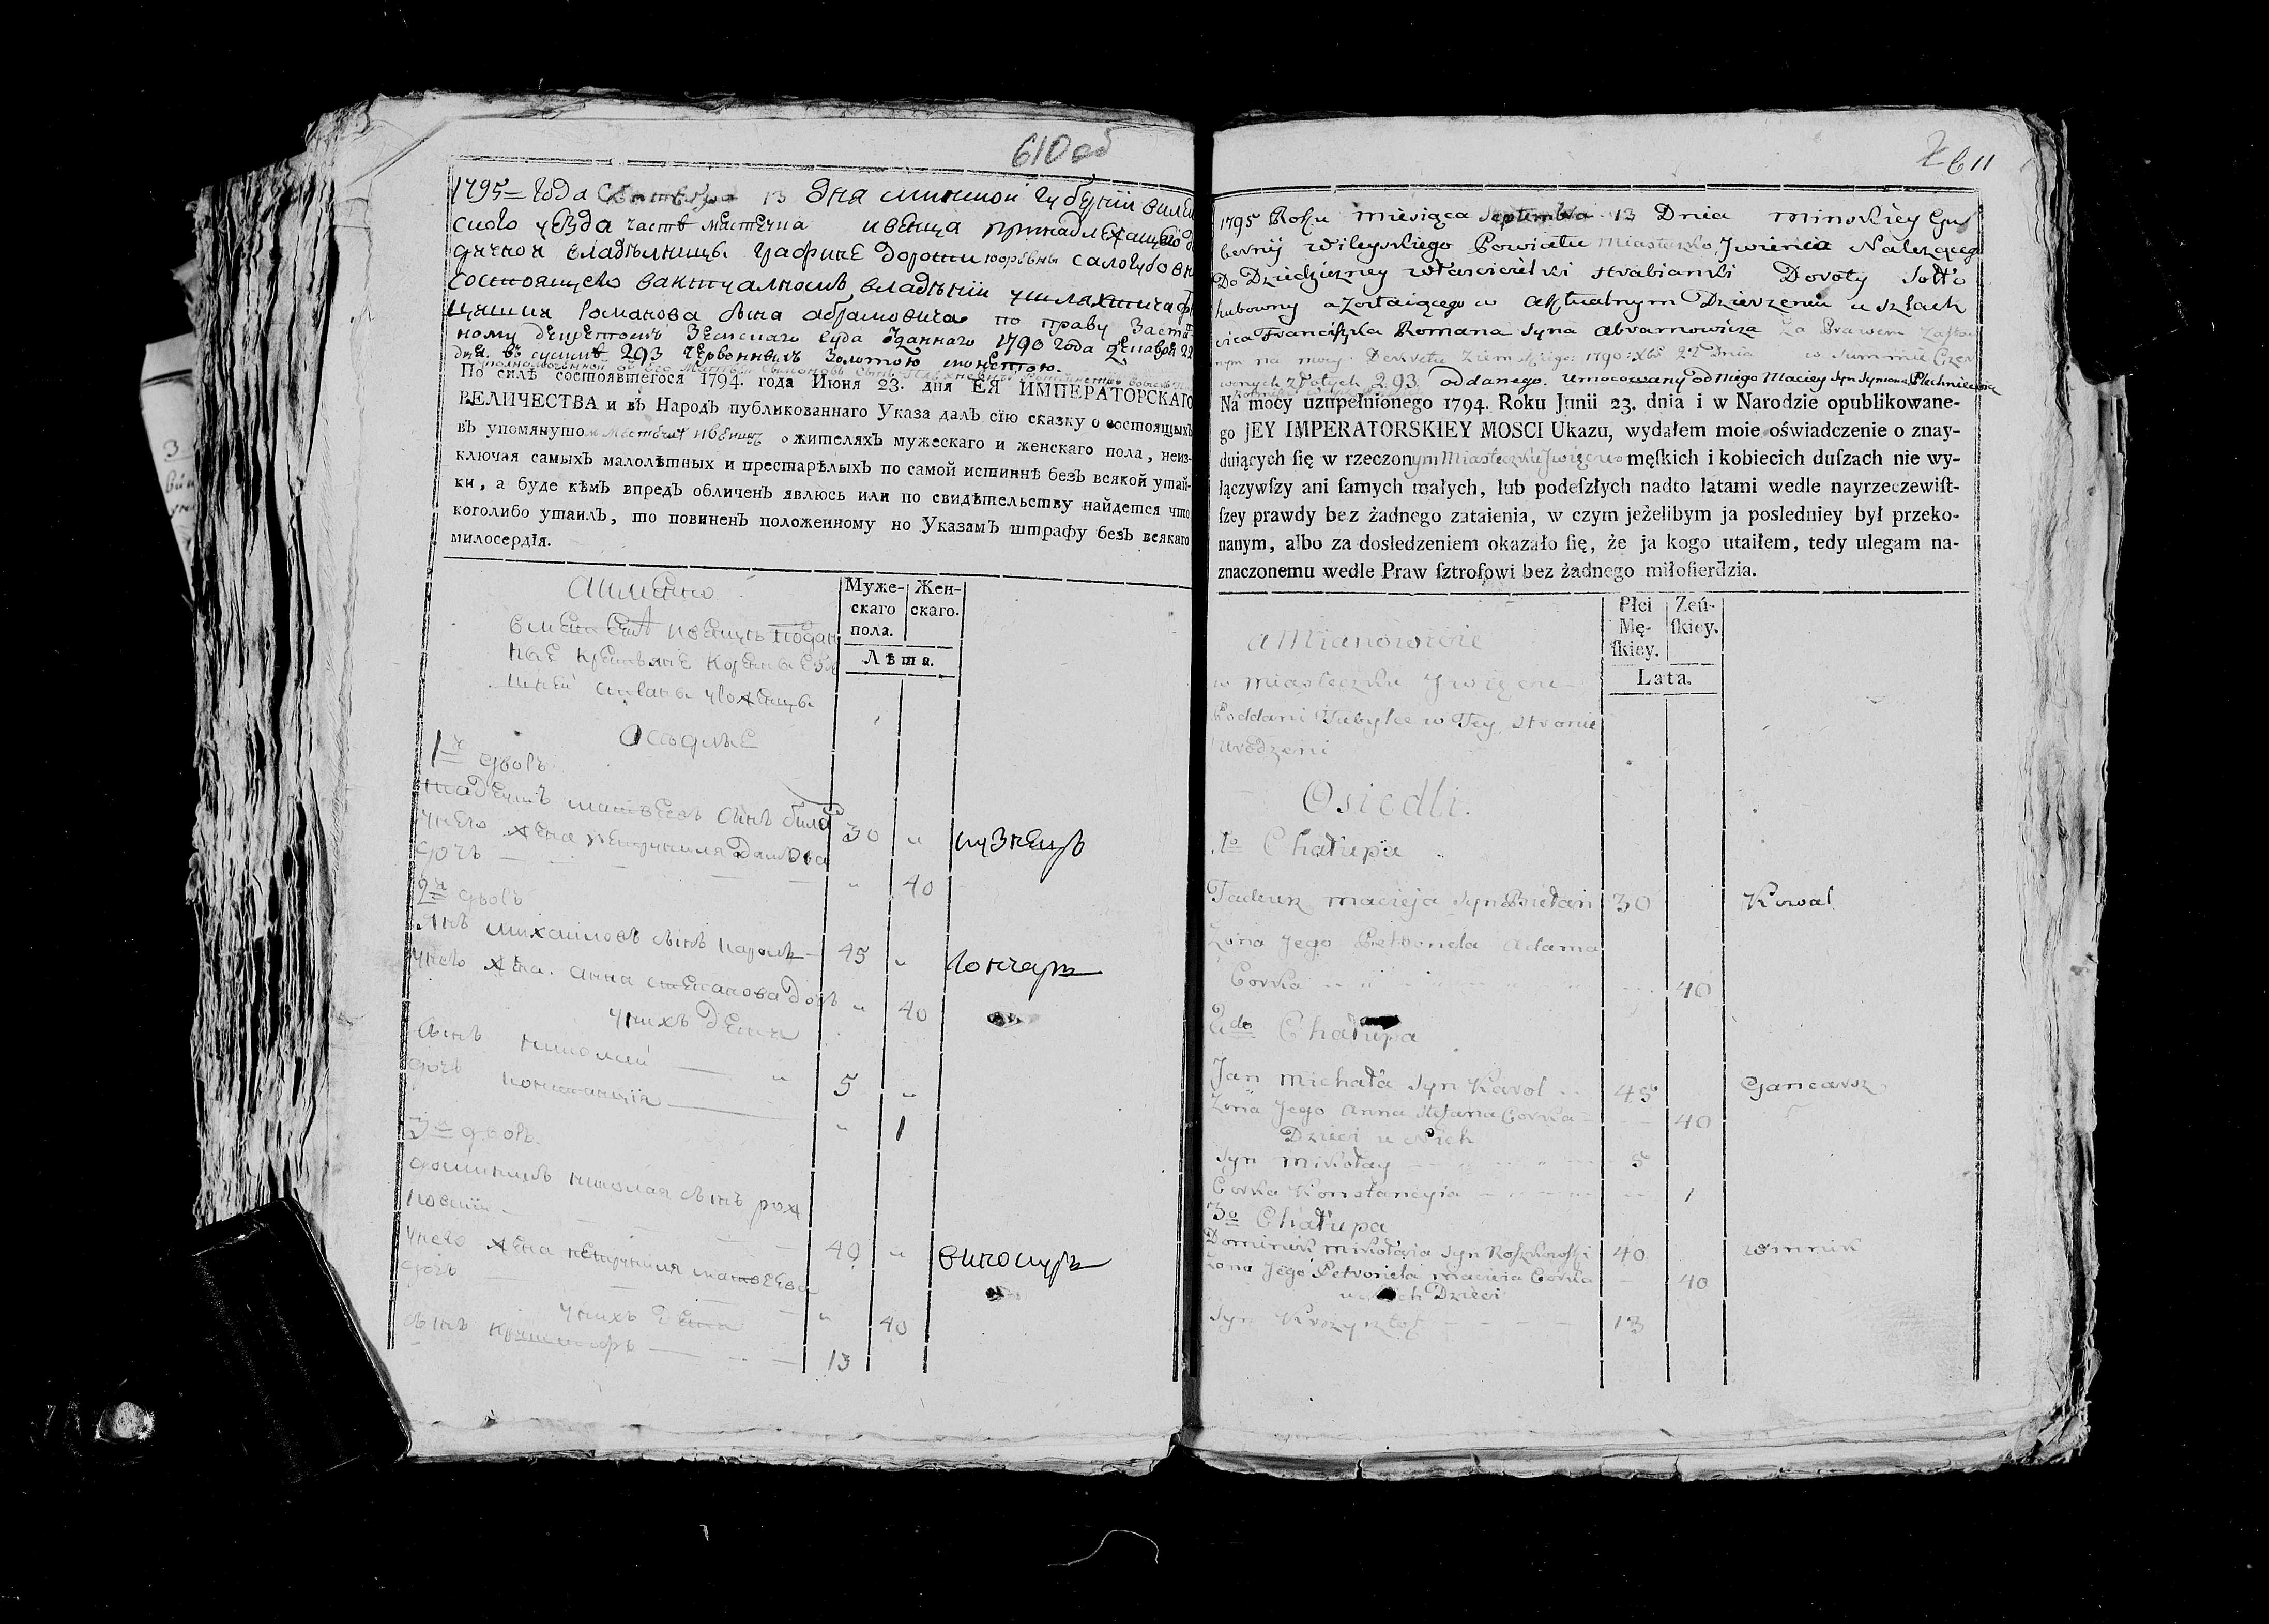 610 об
1795 = Года Сентября 13 дня минской губерніи вилей
скаго уезда часть местечка ивенца принадлежащего
дичной владѣлницы графине Дороти юрьевны салогубовн
состоящего вактуалномъ владѣніи ушляхтича
Романова сына абрамовича по праву Заста
ному декретомъ Земскаго суда Зданнаго 1790 года декабря 22
дня. въ суммѣ 293 червонныхъ золотою монетою.
По силѣ состоявшегося 1794. года Июня 23. дня ЕЯ ИМПЕРАТОРСКАГО
ВЕЛИЧЕСТВА и въ Народъ публикованнаго Указа далъ сїю сказку о состоящыхъ
въ упомянутомъ местечке ивенцу о жителяхъ мужескаго и женскаго пола, неиз-
ключая самыхъ малолѣтныхъ и престарѣлыхъ по самой истиннѣ безъ всякой утай-
ки, а буде кѣмъ впредъ обличенъ явлюсь или по свидѣтельству найдется что
коголибо утаилъ, то повиненъ положенному но Указамъ штрафу безъ всякаго
милосердїя.
Муже- Жен-
скаго скаго.
пола.
Лѣта.
аимянно
ивенцу подан
ные крестьяне
уроженцы
Оседлые
1й дворъ
тадеушъ матвеевъ сынъ била 30 „ кузнецъ
унего жена петрунеля Дамова
дочь „ 40
2й дворъ
Янъ михаиловъ сынъ кароль 45 „ гончаръ
унего жена. анна степанова дочь „ 40
унихъ дети
сынъ николай 5 „
дочь констанція „ 1
3й дворъ
доминикъ николая сынъ рож
коскій 40 „ винокуръ
унего жена петрунеля матвеева
дочь „ 40
унихъ дети
сынъ криштофъ 13
611
1795 Roku miesiąca Septembra 13 Dnia minskiey Gu
bernij Wileyskiego Powiatu Miasteczko Jwieńca Należącego
Do Dziedziczney właścicielki Hrabianki Doroty Sołło
hubowny a Zostaiącego w Aktualnym Dzierzeniu u szlach
cica Franciszka Romana syna abramowicza Za Prawem Zasta
nym na mocy Dekretu Ziemskiego 1790 Xbr 22 Dnia w Summie Czer
wonych złotych 293. oddanego. Umocowany od Niego Maciey Syn Symona Plechniewicz
Na mocy uzupełnionego 1794. Roku Junii 23. dnia i w Narodzie opublikowane-
go JEY IMPERATORSKIEY MOSCI Ukazu, wydałem moie oświadczenie o znay-
duiących ſię w rzeczonym Miasteczku Jwięcu męſkich i kobiecich duſzach nie wy-
łączywſzy ani ſamych małych, lub podeſzłych nadto latami wedle nayrzeczewiſt-
ſzey prawdy bez żadnego zataienia, w czym jeżelibym ja posledniey był przeko-
nanym, albo za dosledzeniem okazało ſię, że ja kogo utaiłem, tedy ulegam na-
znaczonemu wedle Praw ſztrofowi bez żadnego miłoſierdzia.
Płci Zeń-
Mę- ſkiey.
ſkiey.
Lata.
a Mianowicie
w miasteczku Jwięcu
Poddani Tubylce w Tey stronie
Urodzeni
Osiedli.
1o Chałupa
Tadeusz macieja syn Biełan 30 Kowal
Zona Jego Petronela Adama
Corka 40
2do Chałupa
Jan Michała syn Karol 45 Gancarz
Zona Jego Anna Stefana Corka 40
Dzieci u Nich
Syn Mikołay 5
Corka Konstancyia 1
3o Chałupa
Dominik mikołaia syn Roszkowski 40 winnik
Zona Jego Petronela macieia Corka 40
u Nich Dzieci
Syn Krzysztof 13